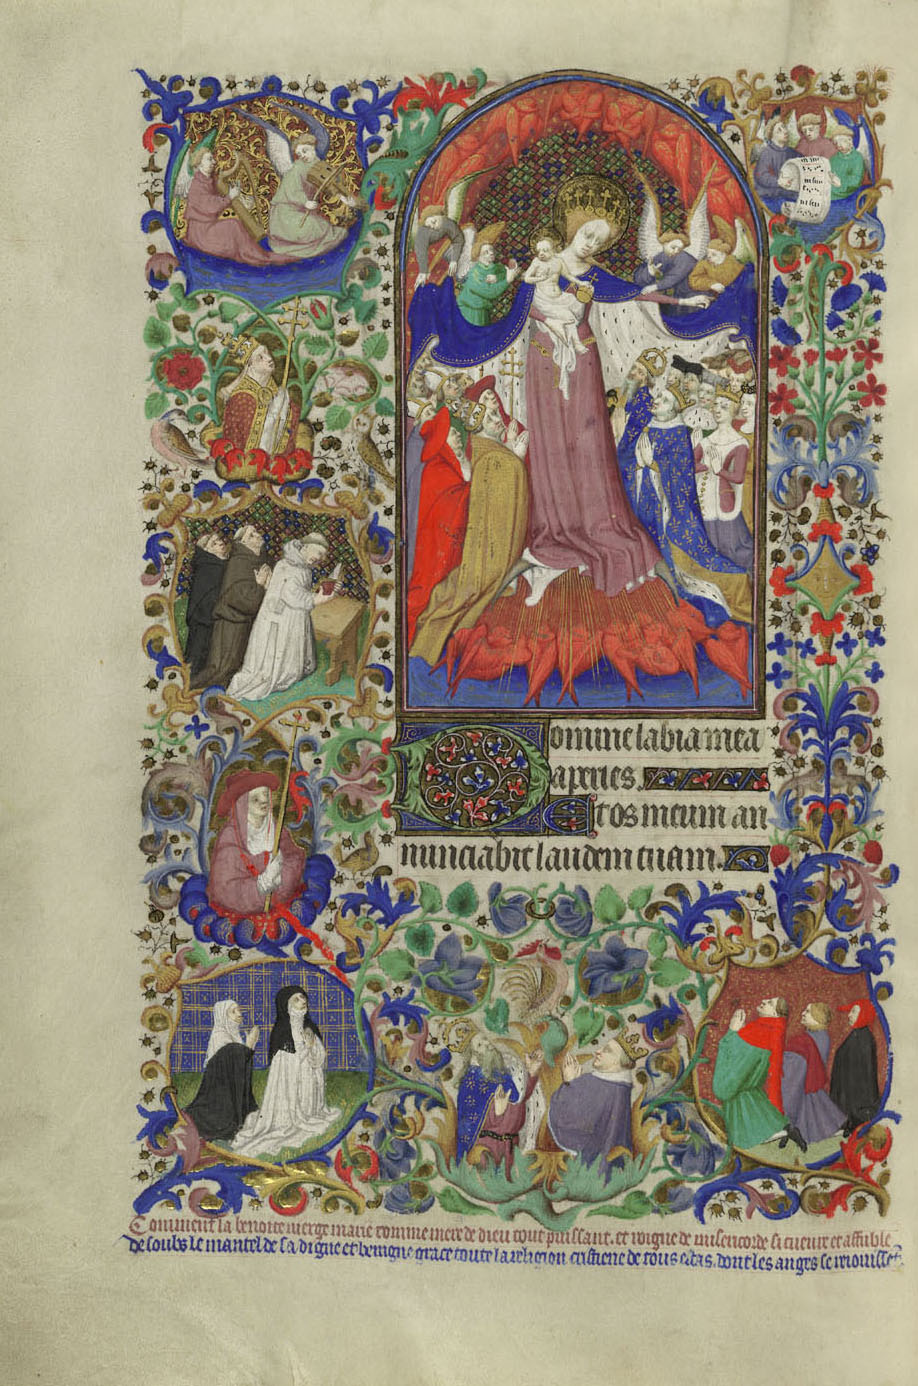 Domine labia mea
aperies.
Et os meum an
nunciabit laudem tuam.
Comment la benoite vierge marie comme mere de dieu tout puissant. et roigne de misericorde si cueuvre et affuble
desoubs le mantel de sa digne et benigne grace toute la religion cristiene de tous estas. dont les angès se